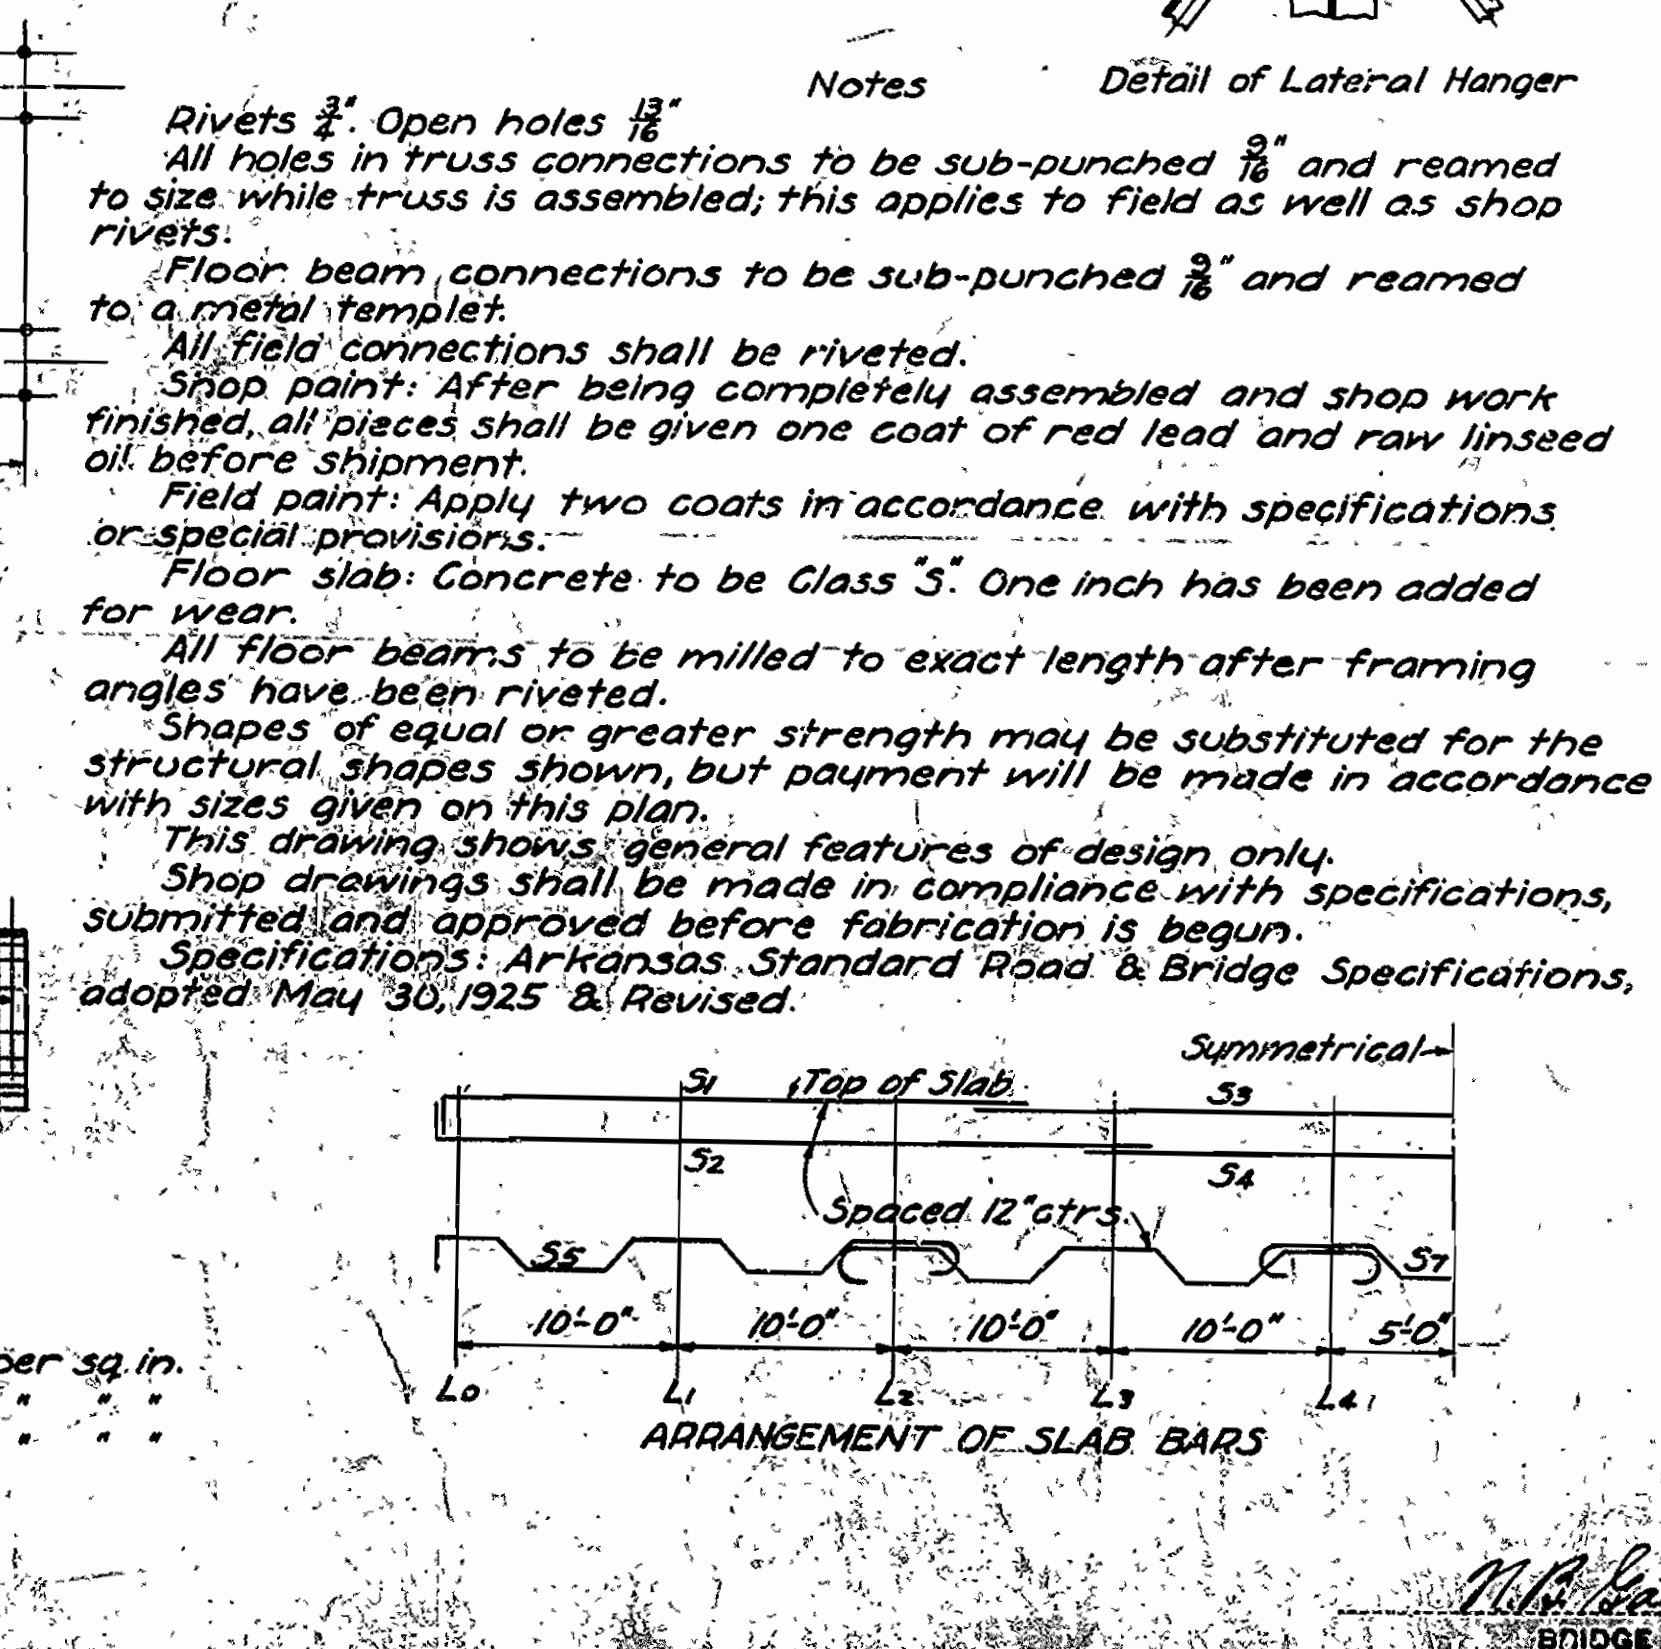 Notes
Detail of Lateral Hanger
Rivets 3/4". Open holes 13/16"
All holes in truss connections to be sub-punched 9/16" and reamed
to size while truss is assembled; this applies to field as well as shop
rivets.
Floor beam connections to be sub-punched 9/16" and reamed
to a metal templet.
All field connections shall be riveted.
Shop paint: After being completely assembled and shop work
finished, all pieces shall be given one coat of red lead and raw linseed
oil before shipment.
Field paint: Apply two coats in accordance with specifications
or special provisions.
Floor slab: Concrete to be Class "S". One inch has been added
for wear.
All floor beams to be milled to exact length after framing
angles have been riveted.
Shapes of equal or greater strength may be substituted for the
structural shapes shown, but payment will be made in accordance
with sizes given on this plan.
This drawing shows general features of design only.
Shop drawings shall be made in compliance with specifications,
submitted and approved before fabrication is begun.
Specifications: Arkansas Standard Road & Bridge Specifications,
adopted May 30, 1925 & Revised.
Symmetrical
S1 Top of Slab S3
S2 S4
Spaced 12" ctrs.
S5 S7
10'-0" 10'-0" 10'-0" 10'-0" 5'-0"
per sq. in.
" " "
" " "
L0 L1 L2 L3 L4
ARRANGEMENT OF SLAB BARS
N.B.
BRIDGE